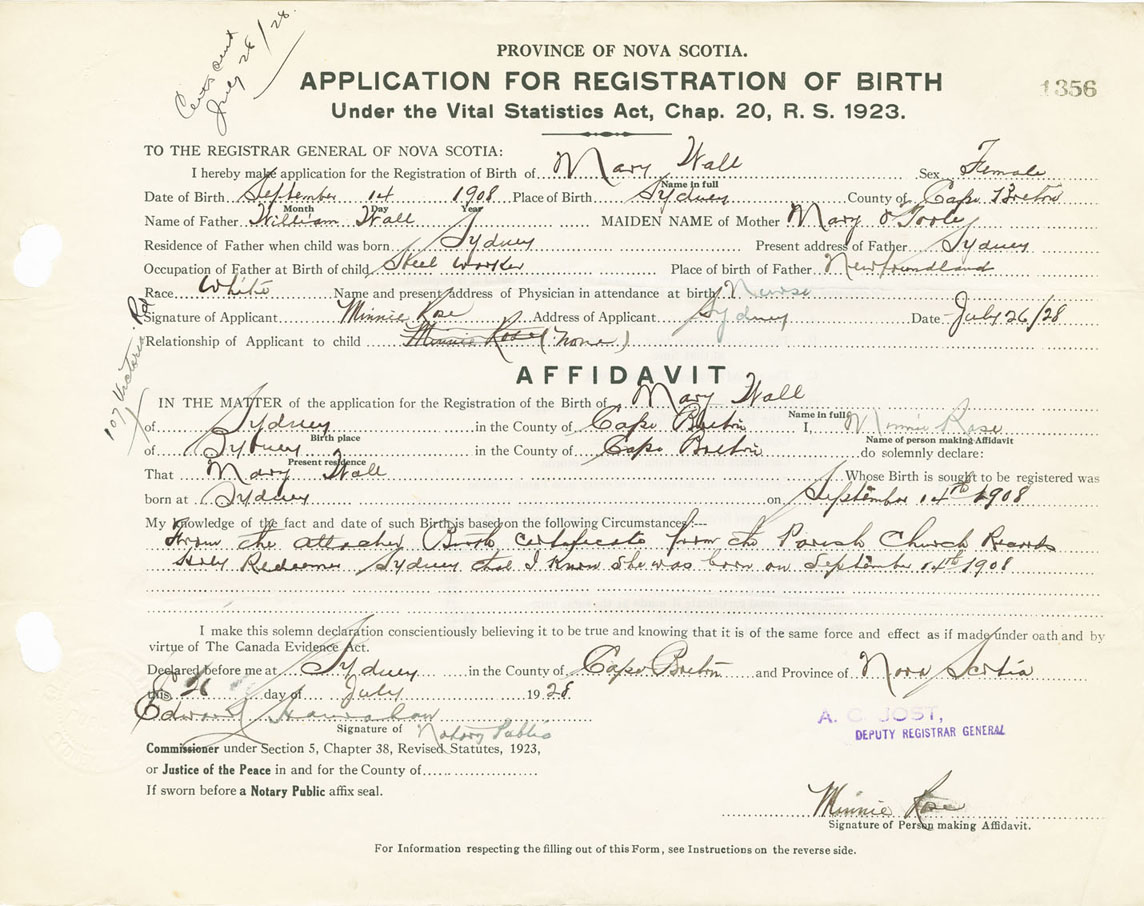 Cert sent
July 28/28.
PROVINCE OF NOVA SCOTIA.
APPLICATION FOR REGISTRATION OF BIRTH
1356
Under the Vital Statistics Act, Chap. 20, R. S. 1923.
TO THE REGISTRAR GENERAL OF NOVA SCOTIA:
I hereby make application for the Registration of Birth of Mary Wall Sex Female
Name in full
Date of Birth September 14 1908 Place of Birth Sydney County of Cape Breton
Month Day Year
Name of Father William Wall MAIDEN NAME of Mother Mary O'Tooley
Residence of Father when child was born Sydney Present address of Father Sydney
Occupation of Father at Birth of child Steel Worker Place of birth of Father Newfoundland
Race White Name and present address of Physician in attendance at birth Nurse
Signature of Applicant Minnie Rose Address of Applicant Sydney Date July 26/28
Relationship of Applicant to child Minnie Rose (None)
107 Victoria Rd
AFFIDAVIT
IN THE MATTER of the application for the Registration of the Birth of Mary Wall
Name in full
of Sydney in the County of Cape Breton I, Minnie Rose
Birth place Name of person making Affidavit
of Sydney in the County of Cape Breton do solemnly declare:
Present residence
That Mary Wall Whose Birth is sought to be registered was
born at Sydney on September 14th 1908
My knowledge of the fact and date of such Birth is based on the following Circumstances:---
From the attached Birth Certificate from the Parish Church Records
Holy Redeemer Sydney that I know she was born on September 14th 1908
I make this solemn declaration conscientiously believing it to be true and knowing that it is of the same force and effect as if made under oath and by
virtue of The Canada Evidence Act.
Declared before me at Sydney in the County of Cape Breton and Province of Nova Scotia
this 26 day of July 1928
Edward
Signature of Notary Public
A. C. JOST,
DEPUTY REGISTRAR GENERAL
Commissioner under Section 5, Chapter 38, Revised Statutes, 1923,
or Justice of the Peace in and for the County of
If sworn before a Notary Public affix seal.
Minnie Rose
Signature of Person making Affidavit.
For Information respecting the filling out of this Form, see Instructions on the reverse side.